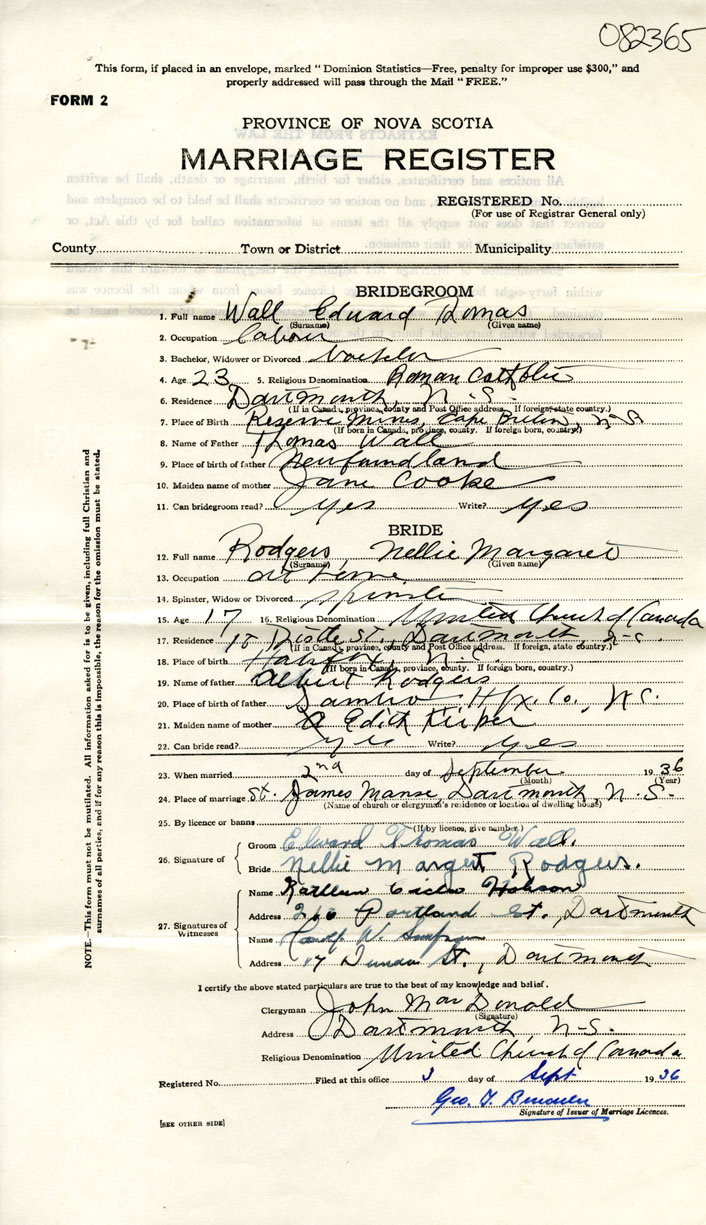 082365
This form, if placed in an envelope, marked "Dominion Statistics—Free, penalty for improper use $300," and
properly addressed will pass through the Mail "FREE."
FORM 2
PROVINCE OF NOVA SCOTIA
MARRIAGE REGISTER
REGISTERED No.
(For use of Registrar General only)
County Town or District Municipality
BRIDEGROOM
1. Full name Wall Edward Thomas
(Surname) (Given name)
2. Occupation Labour
3. Bachelor, Widower or Divorced bachelor
4. Age 23 5. Religious Denomination Roman Catholic
6. Residence Dartmouth, N.S.
(If in Canada, province, county and Post Office address. If foreign, state country.)
7. Place of Birth Reserve Mines, Cape Breton, N-S
(If born in Canada, province, county. If foreign born, country)
8. Name of Father Thomas Wall
9. Place of birth of father Newfoundland
10. Maiden name of mother Jane Cooke
11. Can bridegroom read? yes Write? yes
BRIDE
12. Full name Rodgers, Nellie Margaret
(Surname) (Given name)
13. Occupation at home
14. Spinster, Widow or Divorced spinster
15. Age 17 16. Religious Denomination United Church of Canada
17. Residence St., Dartmouth, N-S.
(If in Canada, province, county and Post Office address. If foreign, state country.)
18. Place of birth Halifax, N.S.
(If born in Canada, province, county. If foreign born, country.)
19. Name of father Albert Rodgers
20. Place of birth of father Sambro Hfx. Co., N.S.
21. Maiden name of mother Edith
22. Can bride read? yes Write? yes
23. When married 2nd day of September 1936
(Month) (Year)
24. Place of marriage St. James Manse, Dartmouth, N.S.
(Name of church or clergyman's residence or location of dwelling house)
25. By licence or banns
(If by licence, give number.)
26. Signature of Groom Edward Thomas Wall.
Bride Nellie Margert Rodgers.
27. Signatures of Witnesses
Name Kathleen Hobson
Address Portland St., Dartmouth
Name W. Simpson
Address 17 St., Dartmouth
I certify the above stated particulars are true to the best of my knowledge and belief.
Clergyman John MacDonald
(Signature)
Address Dartmouth, N-S.
Religious Denomination United Church of Canada
Registered No. Filed at this office 3 day of Sept 1936
Geo. T.
Signature of Issuer of Marriage Licences.
[SEE OTHER SIDE]
NOTE.—This form must not be mutilated. All information asked for is to be given, including full Christian and
surnames of all parties, and if for any reason this is impossible, the reason for the omission must be stated.